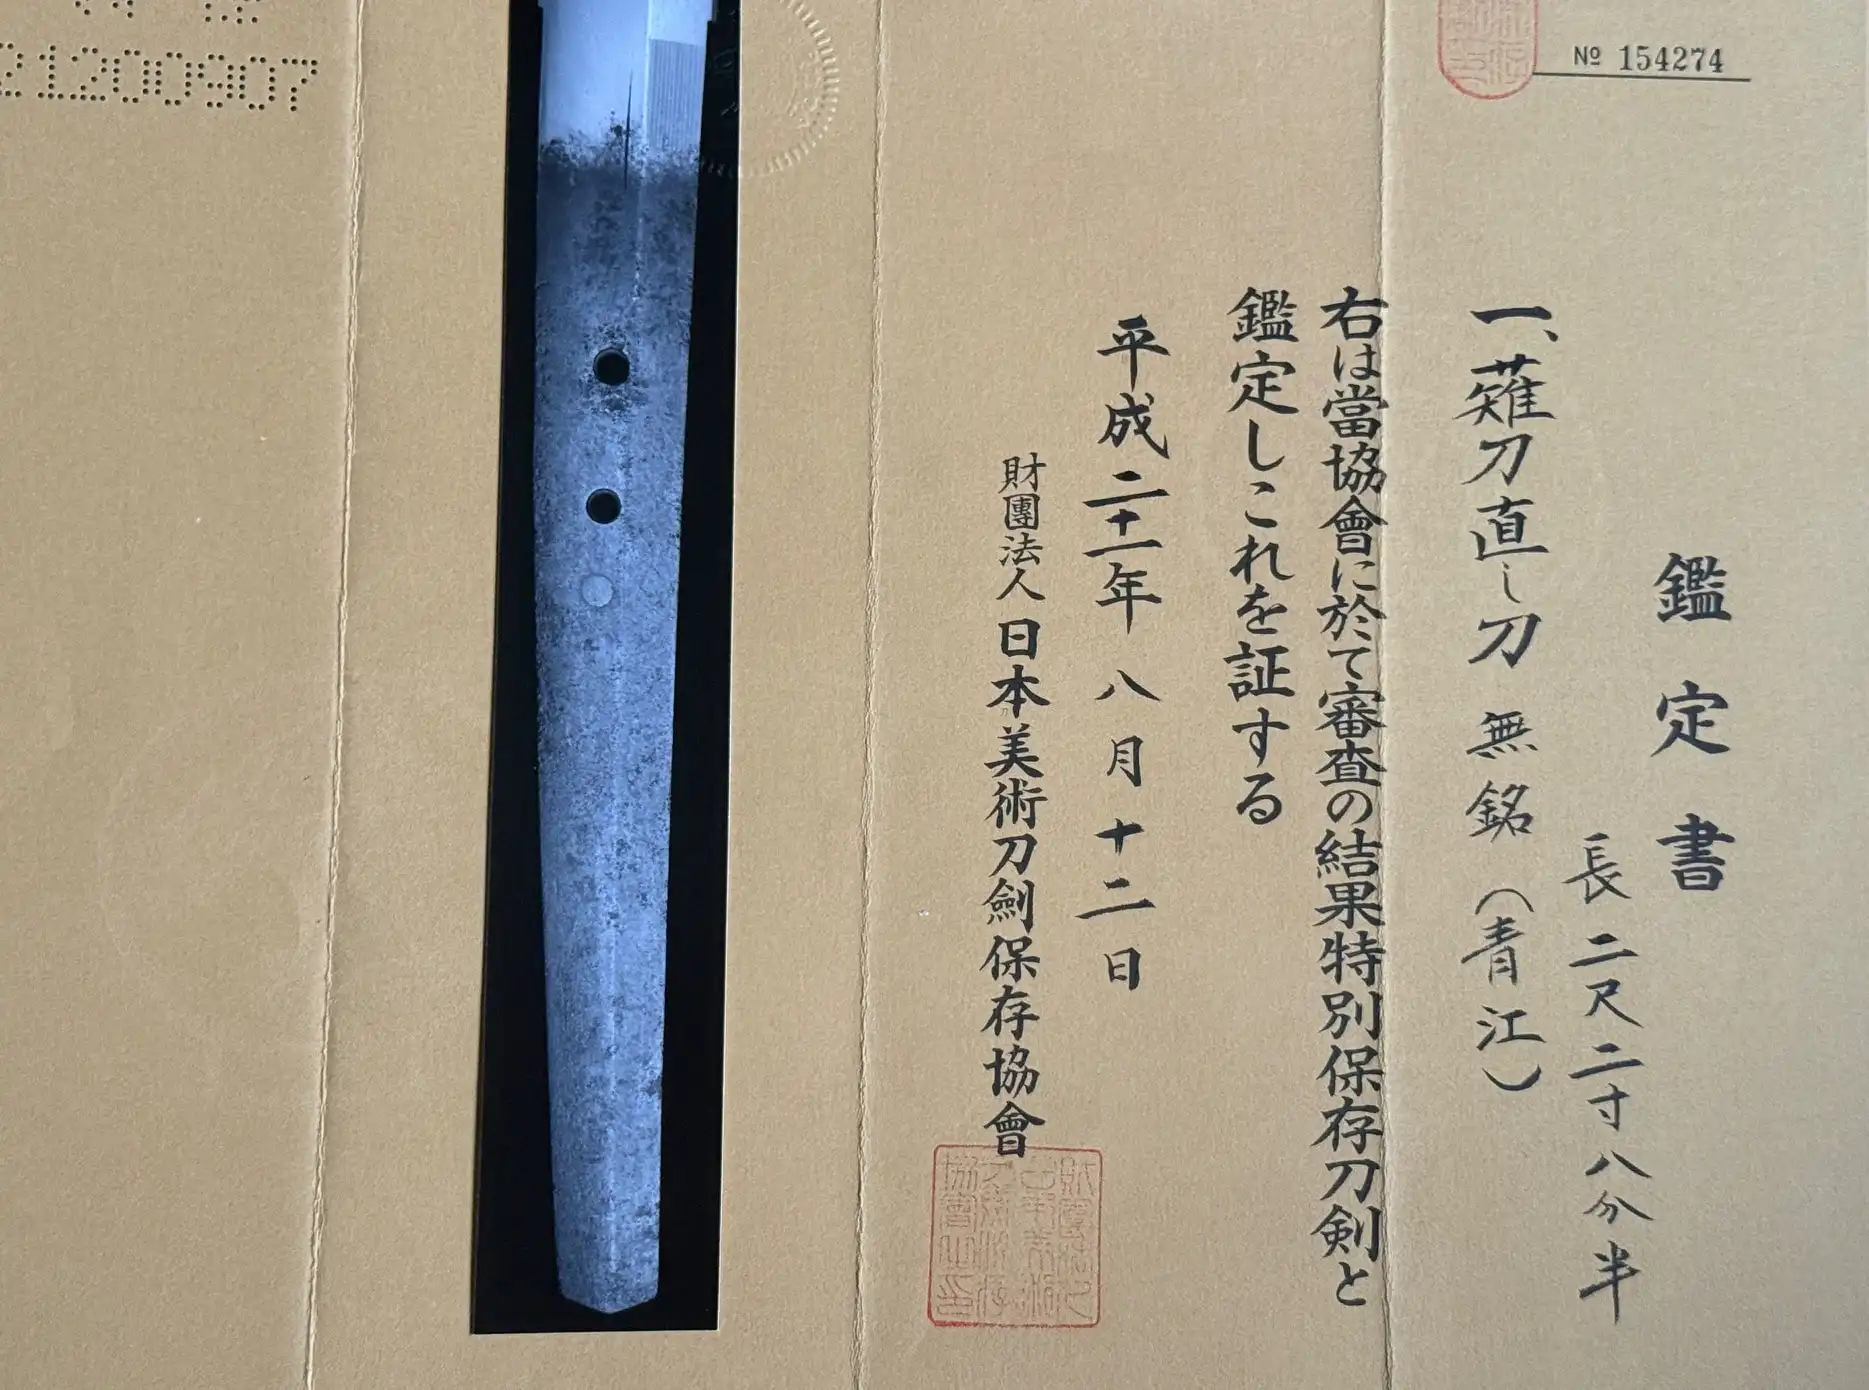 № 154274
鑑定書
長 二尺二寸八分半
一、薙刀直し刀 無銘(青江)
右は當協會に於て審査の結果特別保存刀剣と
鑑定しこれを証する
平成二十一年八月十二日
財團法人 日本美術刀劍保存協會
21200907